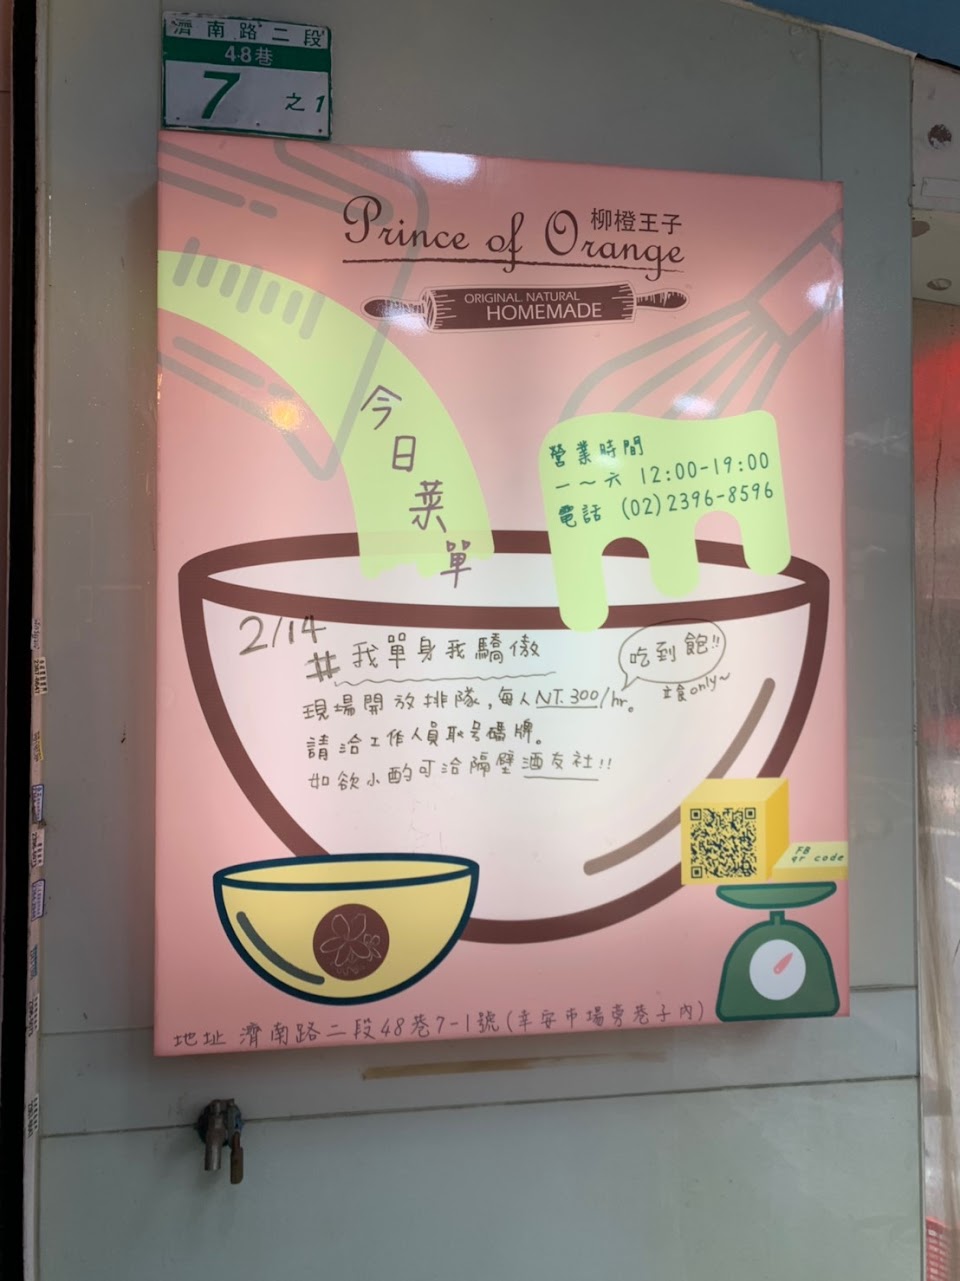 濟南路二段
48巷
7之1
柳橙王子
Prince of Orange
ORIGINAL. NATURAL
HOMEMADE
今日菜單
營業時間
一～六 12:00-19:00
電話 (02)2396-8596
2/14
#我單身我驕傲
吃到飽!!
現場開放排隊，每人NT.300/hr。
立食only~
請洽工作人員取号碼牌。
如欲小酌可洽隔壁酒友社!!
FB
qr code
地址 濟南路二段48巷7-1號(幸安市場旁巷子內)